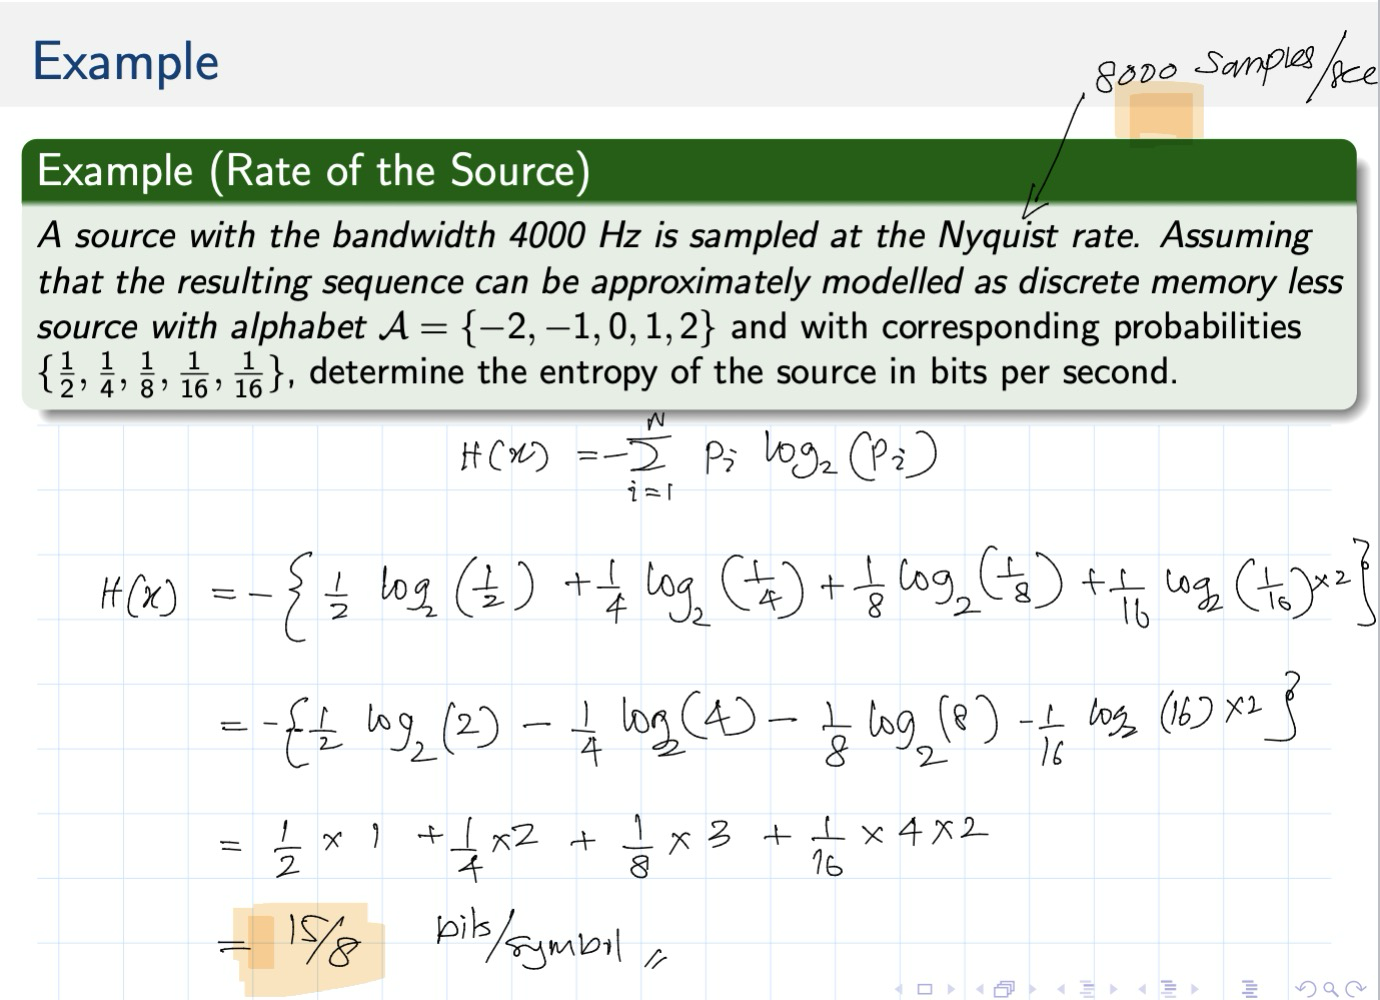 Example
8000 Samples/sce
Example (Rate of the Source)
A source with the bandwidth 4000 Hz is sampled at the Nyquist rate. Assuming
that the resulting sequence can be approximately modelled as discrete memory less
source with alphabet 𝒜 = {−2, −1, 0, 1, 2} and with corresponding probabilities
{1/2, 1/4, 1/8, 1/16, 1/16}, determine the entropy of the source in bits per second.
H(x) = − ∑_{i=1}^{N} P_i log₂ (P_i)
H(x) = − { 1/2 log₂ (1/2) + 1/4 log₂ (1/4) + 1/8 log₂ (1/8) + 1/16 log₂ (1/16) × 2 }
= − { 1/2 log₂ (2) − 1/4 log₂ (4) − 1/8 log₂ (8) − 1/16 log₂ (16) × 2 }
= 1/2 × 1 + 1/4 × 2 + 1/8 × 3 + 1/16 × 4 × 2
= 15/8 bits/symbol //